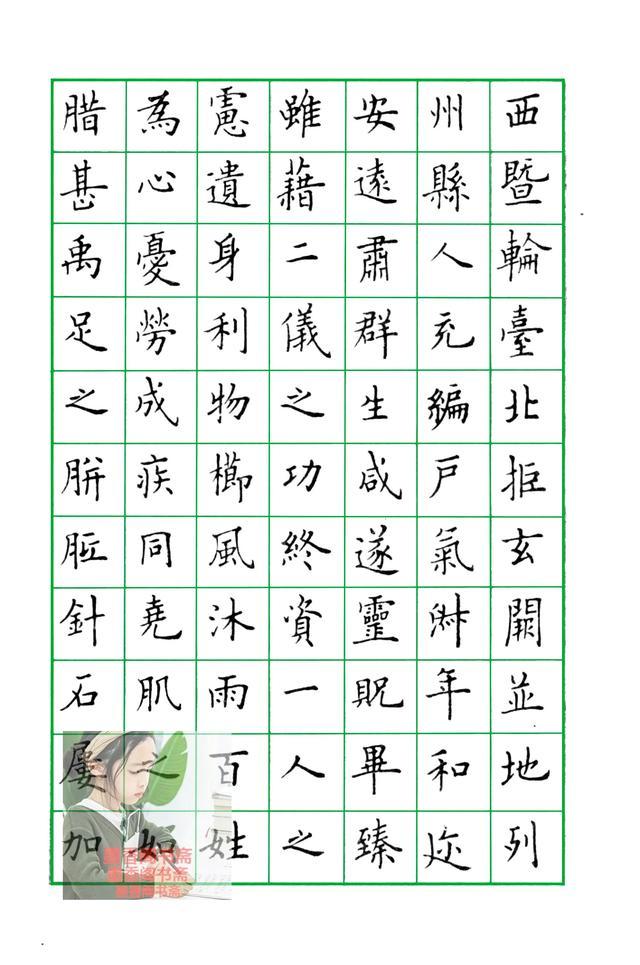 西暨輪臺北拒玄闕並地列
州縣人充編戶氣淑年和迩
安遠肅群生咸遂靈貺畢臻
雖藉二儀之功終資一人之
慮遺身利物櫛風沐雨百姓
為心憂勞成疾同堯肌之如
腊甚禹足之胼胝針石屢加
书斋
书斋
书斋